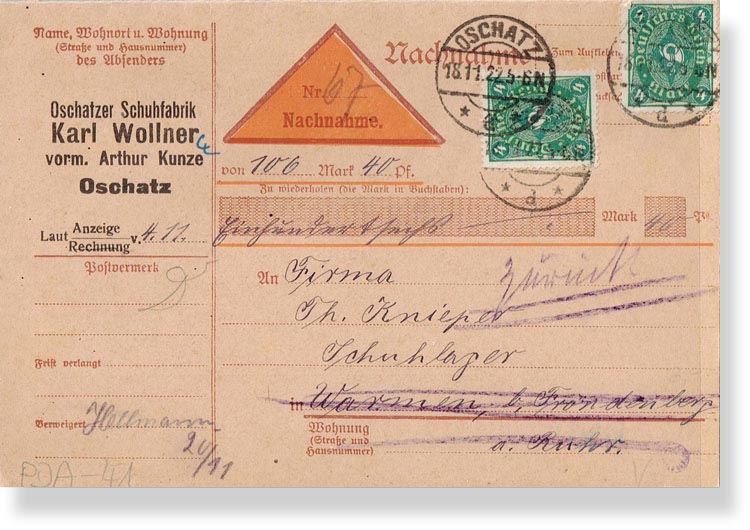 Name, Wohnort u. Wohnung
(Straße und Hausnummer)
des Absenders
Oschatzer Schuhfabrik
Karl Wollner
vorm. Arthur Kunze
Oschatz
Laut Anzeige
Rechnung v. 4.11.
Postvermerk
Frist verlangt
Verweigert
20/11
PDA-41
Nr. 67
Nachnahme.
Nachnahme
Zum Aufkleben
OSCHATZ
18.11.22.5-6N
* d *
4 4
Deutsches Reich
4 4
18.11.22.5-6N
d
* d *
von 106 Mark 40 Pf.
Zu wiederholen (die Mark in Buchstaben):
Einhundertsechs Mark 40 Pf.
An Firma
Zurück
Th. Knieper
Schuhlager
in Warmen, b. Fröndenberg
Wohnung
(Straße und
Hausnummer)
a. Ruhr.